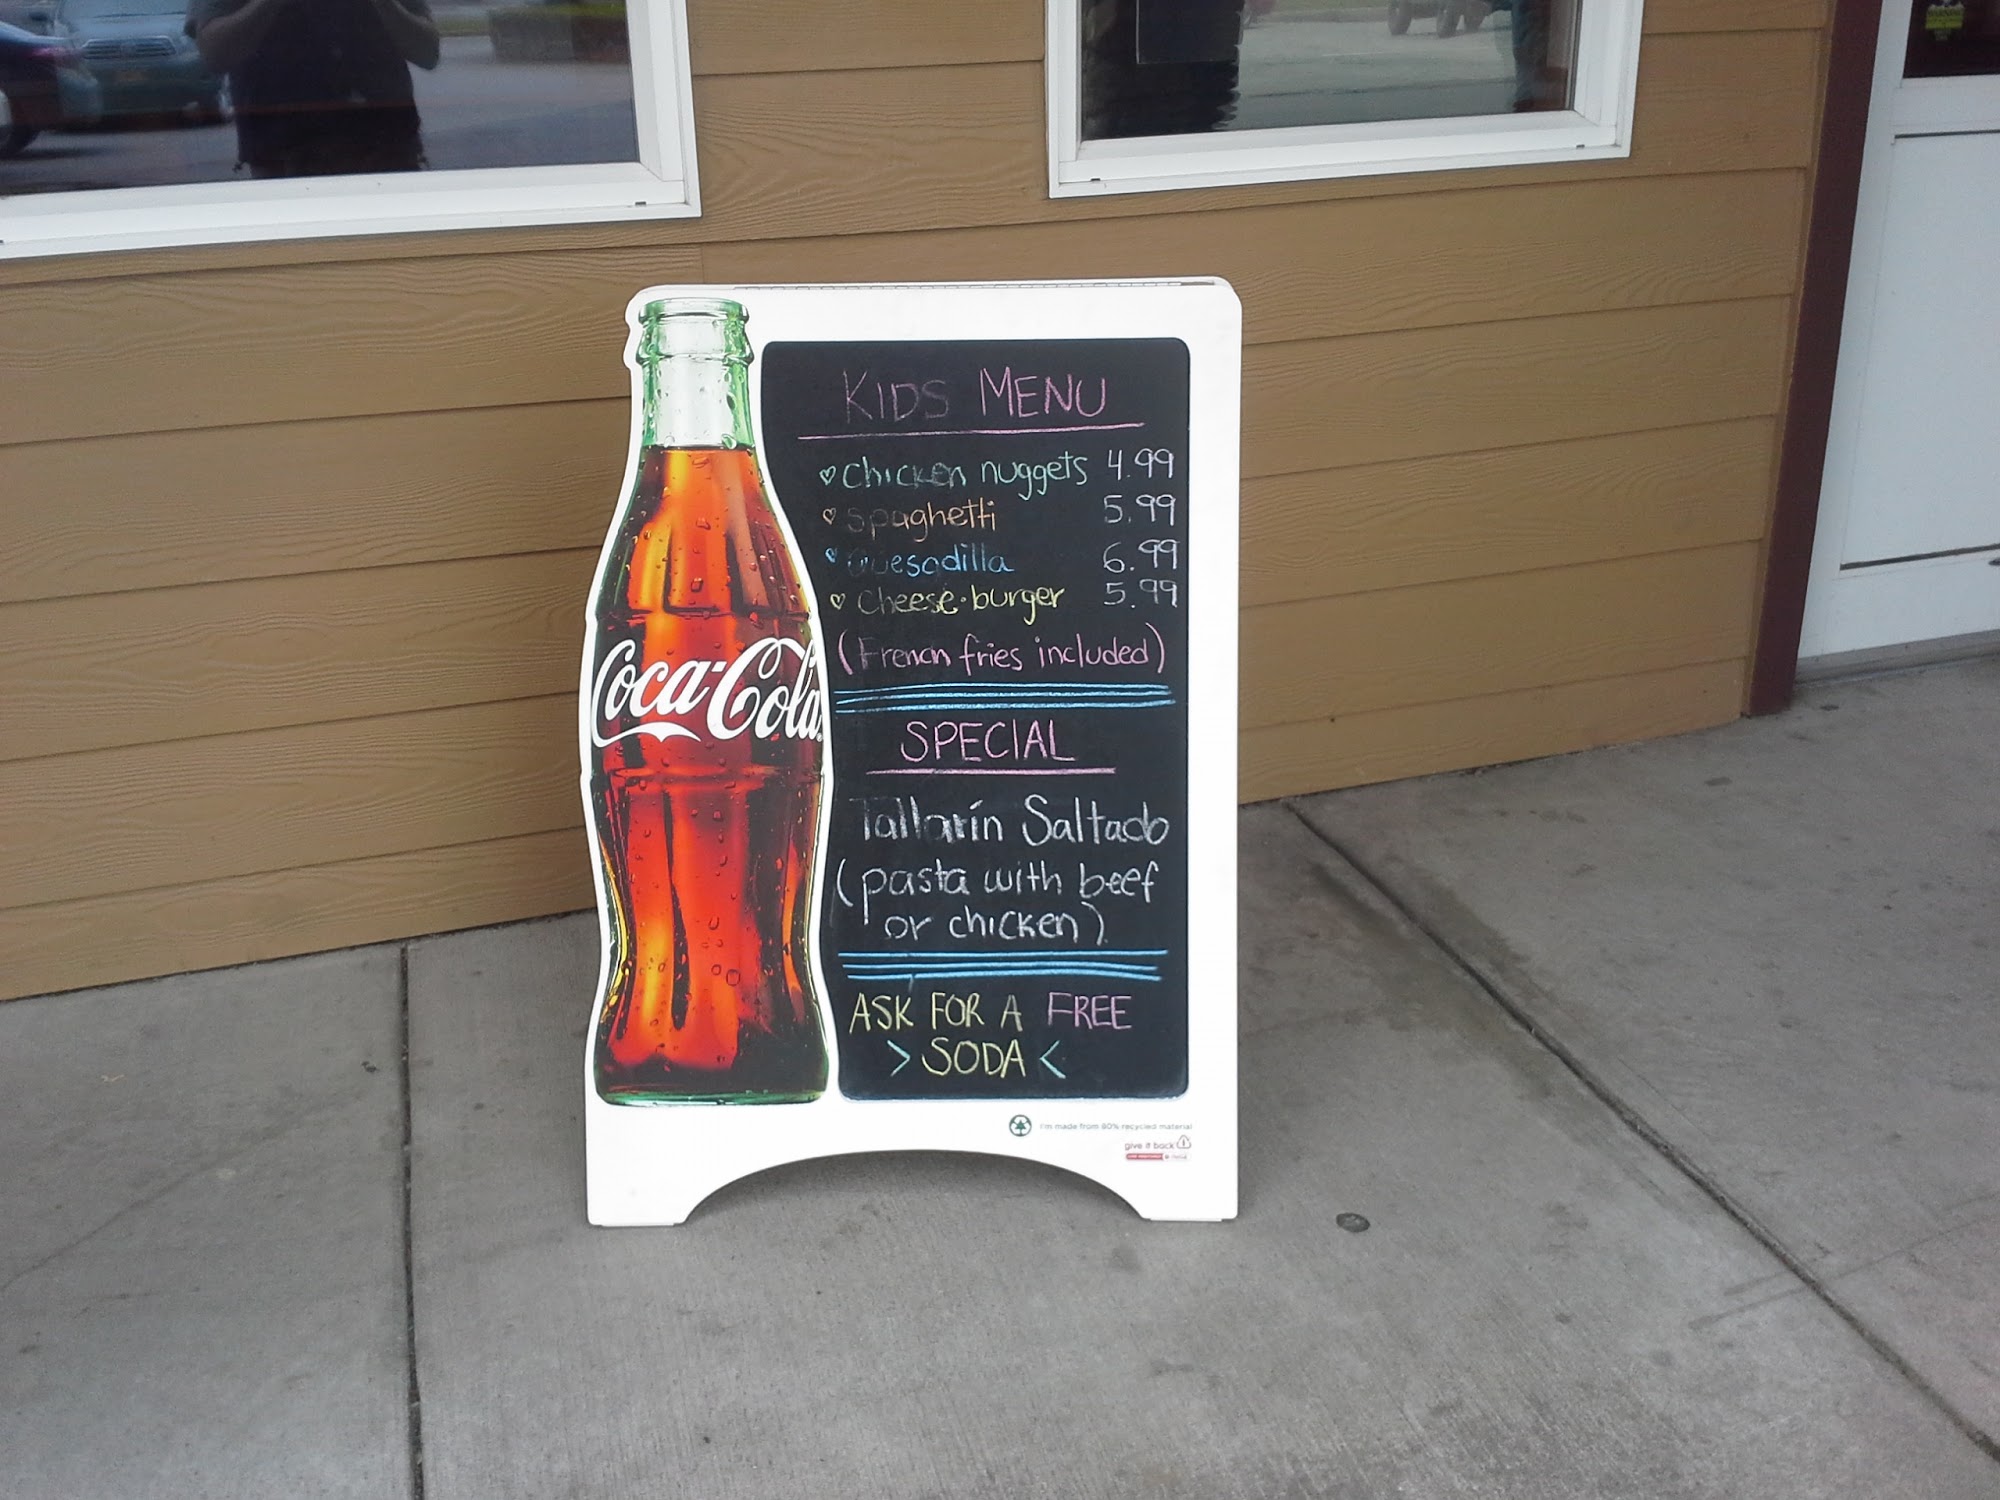 Coca-Cola
KIDS MENU
chicken nuggets 4.99
spaghetti 5.99
quesadilla 6.99
cheese·burger 5.99
(French fries included)
SPECIAL
Tallarín Saltado
(pasta with beef
or chicken)
ASK FOR A FREE
> SODA <
I'm made from 80% recycled material
give it back